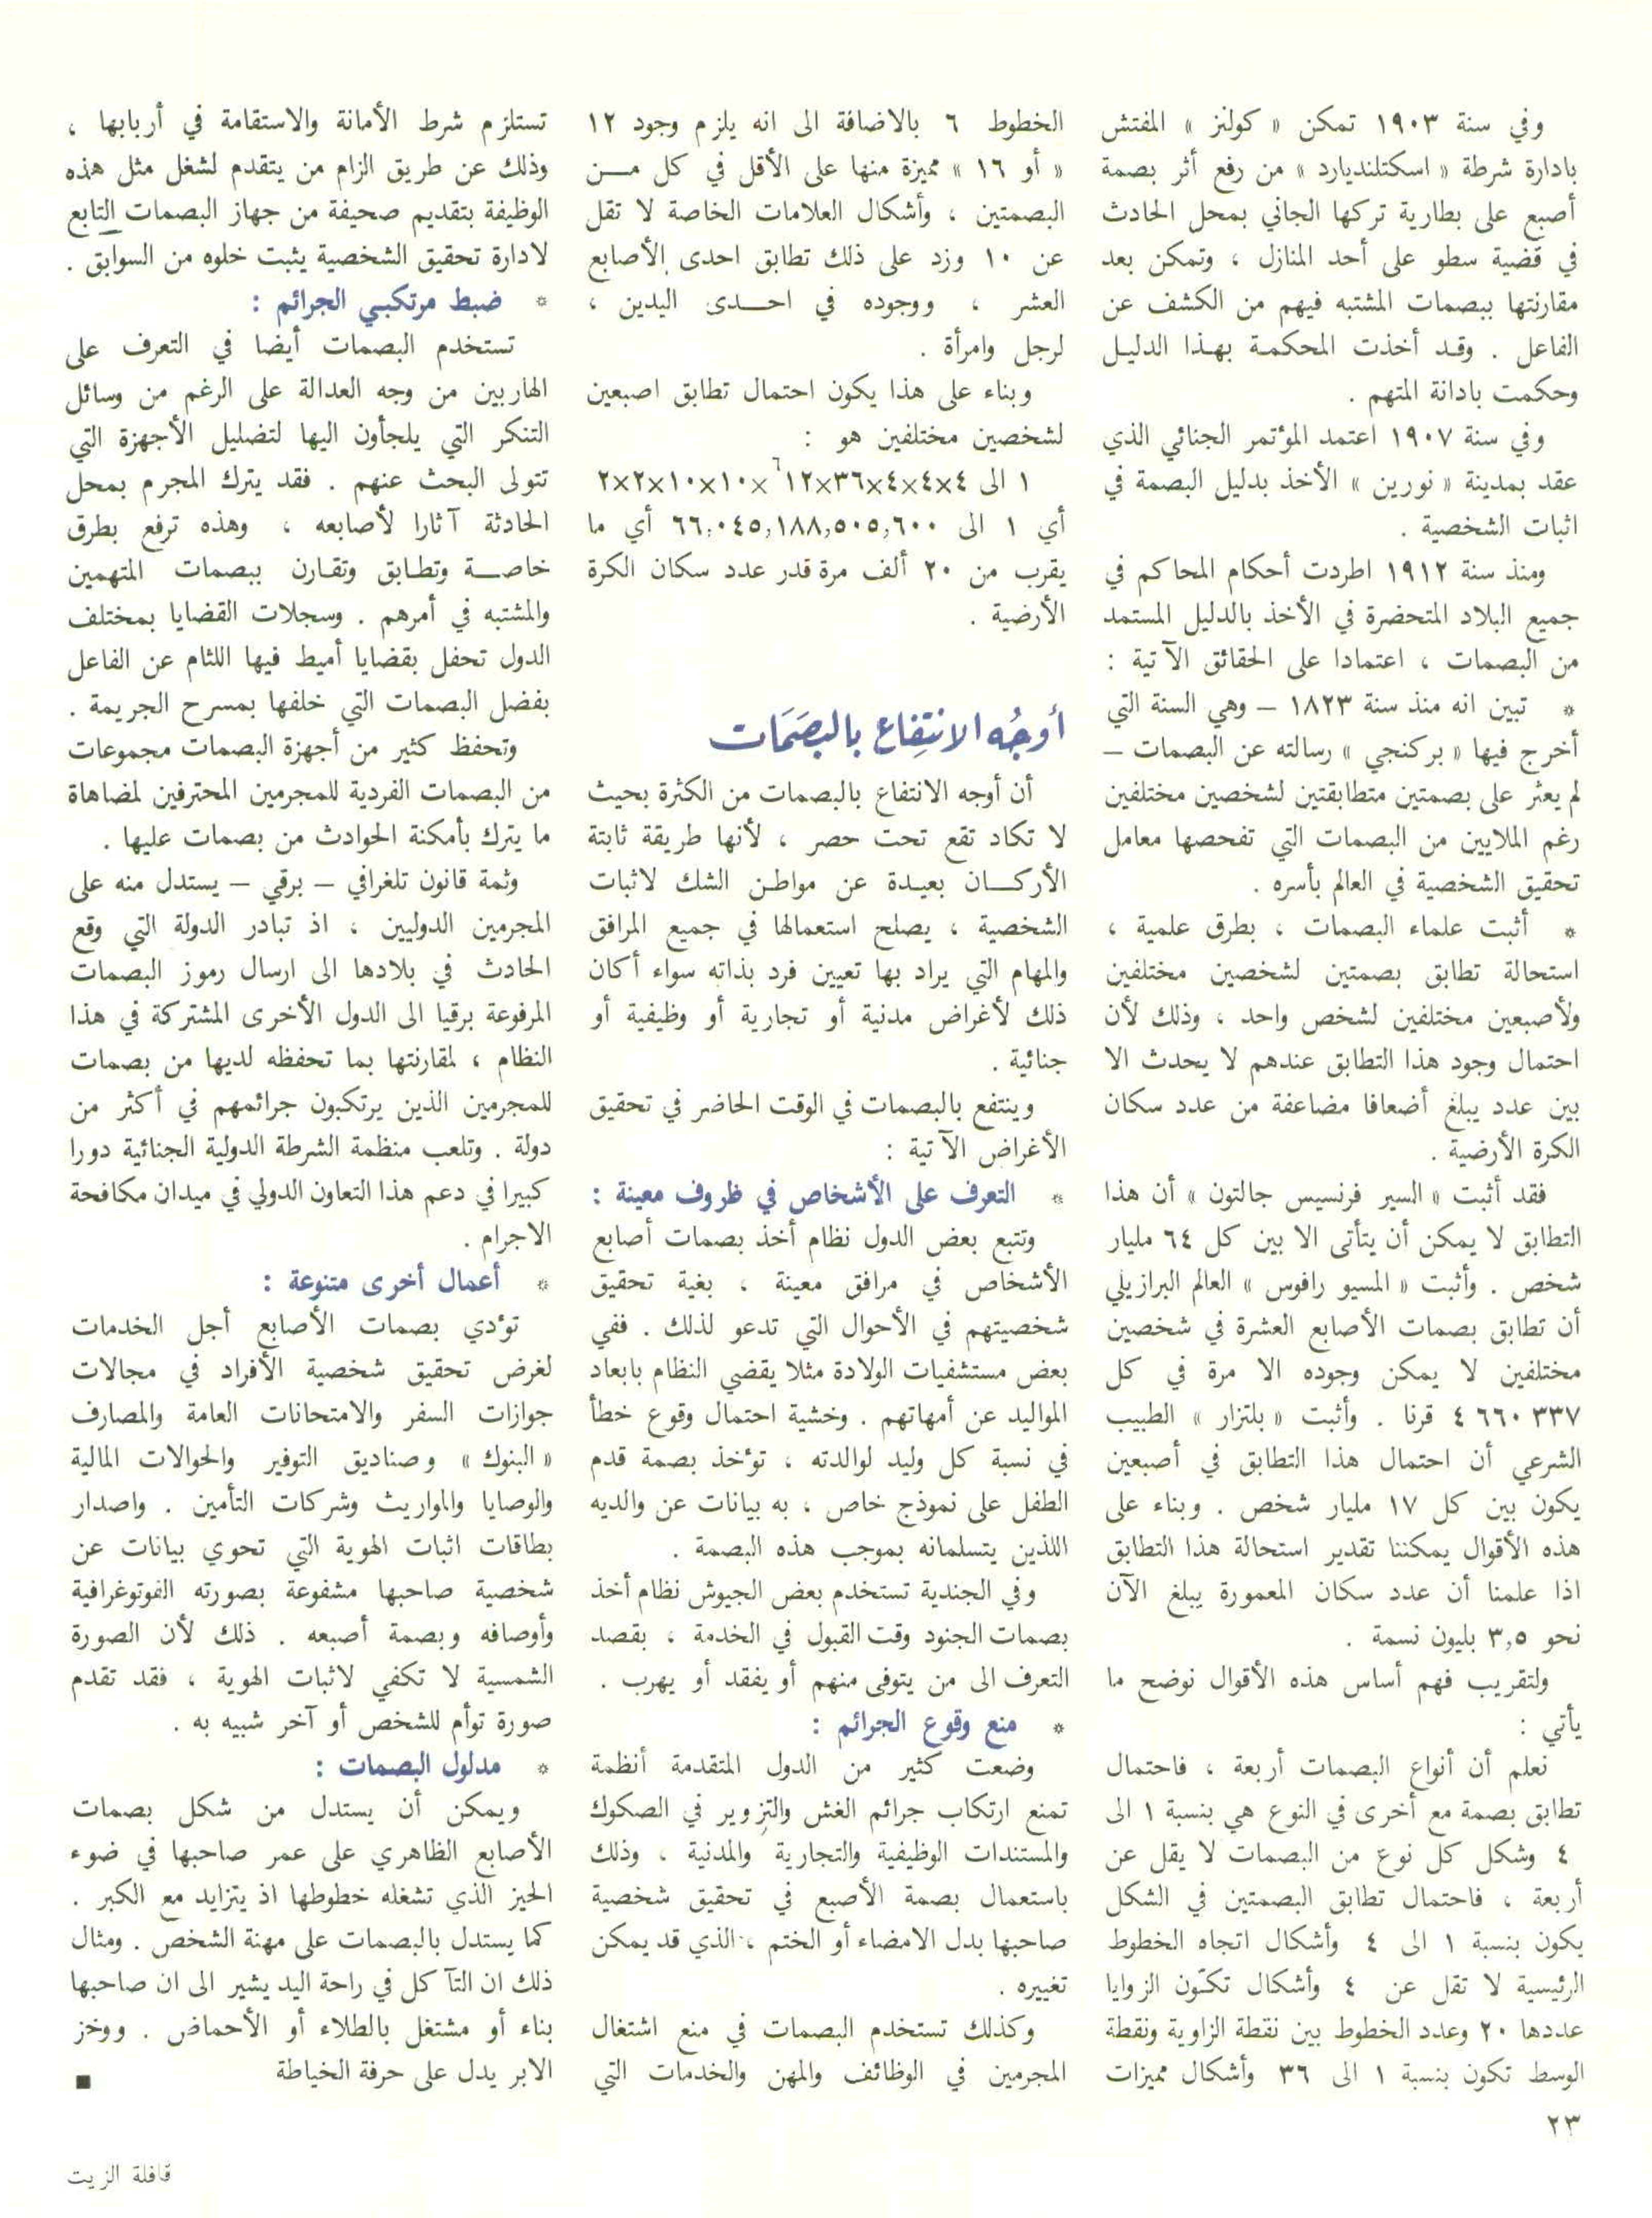 وفي سنة ١٩٠٣ تمكن « كولنز » المفتش
بادارة شرطة « اسكتلنديارد » من رفع أثر بصمة
أصبع على بطارية تركها الجاني بمحل الحادث
في قضية سطو على أحد المنازل ، وتمكن بعد
مقارنتها ببصمات المشتبه فيهم من الكشف عن
الفاعل . وقد أخذت المحكمة بهذا الدليل
وحكمت بادانة المتهم .
وفي سنة ١٩٠٧ اعتمد المؤتمر الجنائي الذي
عقد بمدينة « نورين » الأخذ بدليل البصمة في
اثبات الشخصية .
ومنذ سنة ١٩١٢ اطردت أحكام المحاكم في
جميع البلاد المتحضرة في الأخذ بالدليل المستمد
من البصمات ، اعتمادا على الحقائق الآتية :
* تبين انه منذ سنة ١٨٢٣ – وهي السنة التي
أخرج فيها « بركنجي » رسالته عن البصمات –
لم يعثر على بصمتين متطابقتين لشخصين مختلفين
رغم الملايين من البصمات التي تفحصها معامل
تحقيق الشخصية في العالم بأسره .
* أثبت علماء البصمات ، بطرق علمية ،
استحالة تطابق بصمتين لشخصين مختلفين
ولأصبعين مختلفين لشخص واحد ، وذلك لأن
احتمال وجود هذا التطابق عندهم لا يحدث الا
بين عدد يبلغ أضعافا مضاعفة من عدد سكان
الكرة الأرضية .
فقد أثبت « السير فرنسيس جالتون » أن هذا
التطابق لا يمكن أن يتأتى الا بين كل ٦٤ مليار
شخص . وأثبت « المسيو رافوس » العالم البرازيلي
أن تطابق بصمات الأصابع العشرة في شخصين
مختلفين لا يمكن وجوده الا مرة في كل
٣٣٧ ٦٦٠ ٤ قرنا . وأثبت « بلتزار » الطبيب
الشرعي أن احتمال هذا التطابق في أصبعين
يكون بين كل ١٧ مليار شخص . وبناء على
هذه الأقوال يمكننا تقدير استحالة هذا التطابق
اذا علمنا أن عدد سكان المعمورة يبلغ الآن
نحو ٣,٥ بليون نسمة .
ولتقريب فهم أساس هذه الأقوال نوضح ما
يأتي :
نعلم أن أنواع البصمات أربعة ، فاحتمال
تطابق بصمة مع أخرى في النوع هي بنسبة ١ الى
٤ وشكل كل نوع من البصمات لا يقل عن
أربعة ، فاحتمال تطابق البصمتين في الشكل
يكون بنسبة ١ الى ٤ وأشكال اتجاه الخطوط
الرئيسية لا تقل عن ٤ وأشكال تكوّن الزوايا
عددها ٢٠ وعدد الخطوط بين نقطة الزاوية ونقطة
الوسط تكون بنسبة ١ الى ٣٦ وأشكال مميزات
الخطوط ٦ بالاضافة الى انه يلزم وجود ١٢
« أو ١٦ » مميزة منها على الأقل في كل مــن
البصمتين ، وأشكال العلامات الخاصة لا تقل
عن ١٠ وزد على ذلك تطابق احدى الأصابع
العشر ، ووجوده في احــدى اليدين ،
لرجل وامرأة .
وبناء على هذا يكون احتمال تطابق اصبعين
لشخصين مختلفين هو :
١ الى ٤×٤×٤×٣٦×١٢<sup>٦</sup>×١٠×١٠×٢×٢
أي ١ الى ٦٦,٠٤٥,١٨٨,٥٠٥,٦٠٠ أي ما
يقرب من ٢٠ ألف مرة قدر عدد سكان الكرة
الأرضية .
أوجُه الانتِفاع بالبصَمَات
أن أوجه الانتفاع بالبصمات من الكثرة بحيث
لا تكاد تقع تحت حصر ، لأنها طريقة ثابتة
الأركــان بعيدة عن مواطن الشك لاثبات
الشخصية ، يصلح استعمالها في جميع المرافق
والمهام التي يراد بها تعيين فرد بذاته سواء أكان
ذلك لأغراض مدنية أو تجارية أو وظيفية أو
جنائية .
وينتفع بالبصمات في الوقت الحاضر في تحقيق
الأغراض الآتية :
* التعرف على الأشخاص في ظروف معينة :
وتتبع بعض الدول نظام أخذ بصمات أصابع
الأشخاص في مرافق معينة ، بغية تحقيق
شخصيتهم في الأحوال التي تدعو لذلك . ففي
بعض مستشفيات الولادة مثلا يقضي النظام بابعاد
المواليد عن أمهاتهم . وخشية احتمال وقوع خطأ
في نسبة كل وليد لوالدته ، تؤخذ بصمة قدم
الطفل على نموذج خاص ، به بيانات عن والديه
اللذين يتسلمانه بموجب هذه البصمة .
وفي الجندية تستخدم بعض الجيوش نظام أخذ
بصمات الجنود وقت القبول في الخدمة ، بقصد
التعرف الى من يتوفى منهم أو يفقد أو يهرب .
* منع وقوع الجرائم :
وضعت كثير من الدول المتقدمة أنظمة
تمنع ارتكاب جرائم الغش والتزوير في الصكوك
والمستندات الوظيفية والتجارية والمدنية ، وذلك
باستعمال بصمة الأصبع في تحقيق شخصية
صاحبها بدل الامضاء أو الختم ، الذي قد يمكن
تغييره .
وكذلك تستخدم البصمات في منع اشتغال
المجرمين في الوظائف والمهن والخدمات التي
تستلزم شرط الأمانة والاستقامة في أربابها ،
وذلك عن طريق الزام من يتقدم لشغل مثل هذه
الوظيفة بتقديم صحيفة من جهاز البصمات التابع
لادارة تحقيق الشخصية يثبت خلوه من السوابق .
* ضبط مرتكبي الجرائم :
تستخدم البصمات أيضا في التعرف على
الهاربين من وجه العدالة على الرغم من وسائل
التنكر التي يلجأون اليها لتضليل الأجهزة التي
تتولى البحث عنهم . فقد يترك المجرم بمحل
الحادثة آثارا لأصابعه ، وهذه ترفع بطرق
خاصــة وتطابق وتقارن ببصمات المتهمين
والمشتبه في أمرهم . وسجلات القضايا بمختلف
الدول تحفل بقضايا أميط فيها اللثام عن الفاعل
بفضل البصمات التي خلفها بمسرح الجريمة .
وتحفظ كثير من أجهزة البصمات مجموعات
من البصمات الفردية للمجرمين المحترفين لمضاهاة
ما يترك بأمكنة الحوادث من بصمات عليها .
وثمة قانون تلغرافي – برقي – يستدل منه على
المجرمين الدوليين ، اذ تبادر الدولة التي وقع
الحادث في بلادها الى ارسال رموز البصمات
المرفوعة برقيا الى الدول الأخرى المشتركة في هذا
النظام ، لمقارنتها بما تحفظه لديها من بصمات
للمجرمين الذين يرتكبون جرائمهم في أكثر من
دولة . وتلعب منظمة الشرطة الدولية الجنائية دورا
كبيرا في دعم هذا التعاون الدولي في ميدان مكافحة
الاجرام .
* أعمال أخرى متنوعة :
تؤدي بصمات الأصابع أجل الخدمات
لغرض تحقيق شخصية الأفراد في مجالات
جوازات السفر والامتحانات العامة والمصارف
« البنوك » وصناديق التوفير والحوالات المالية
والوصايا والمواريث وشركات التأمين . واصدار
بطاقات اثبات الهوية التي تحوي بيانات عن
شخصية صاحبها مشفوعة بصورته الفوتوغرافية
وأوصافه وبصمة أصبعه . ذلك لأن الصورة
الشمسية لا تكفي لاثبات الهوية ، فقد تقدم
صورة توأم للشخص أو آخر شبيه به .
* مدلول البصمات :
ويمكن أن يستدل من شكل بصمات
الأصابع الظاهري على عمر صاحبها في ضوء
الحيز الذي تشغله خطوطها اذ يتزايد مع الكبر .
كما يستدل بالبصمات على مهنة الشخص . ومثال
ذلك ان التآكل في راحة اليد يشير الى ان صاحبها
بناء أو مشتغل بالطلاء أو الأحماض . ووخز
الابر يدل على حرفة الخياطة ■
٢٣
قافلة الزيت